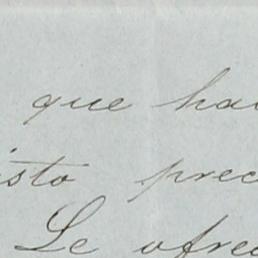 que ha
isto prec
Le ofrec